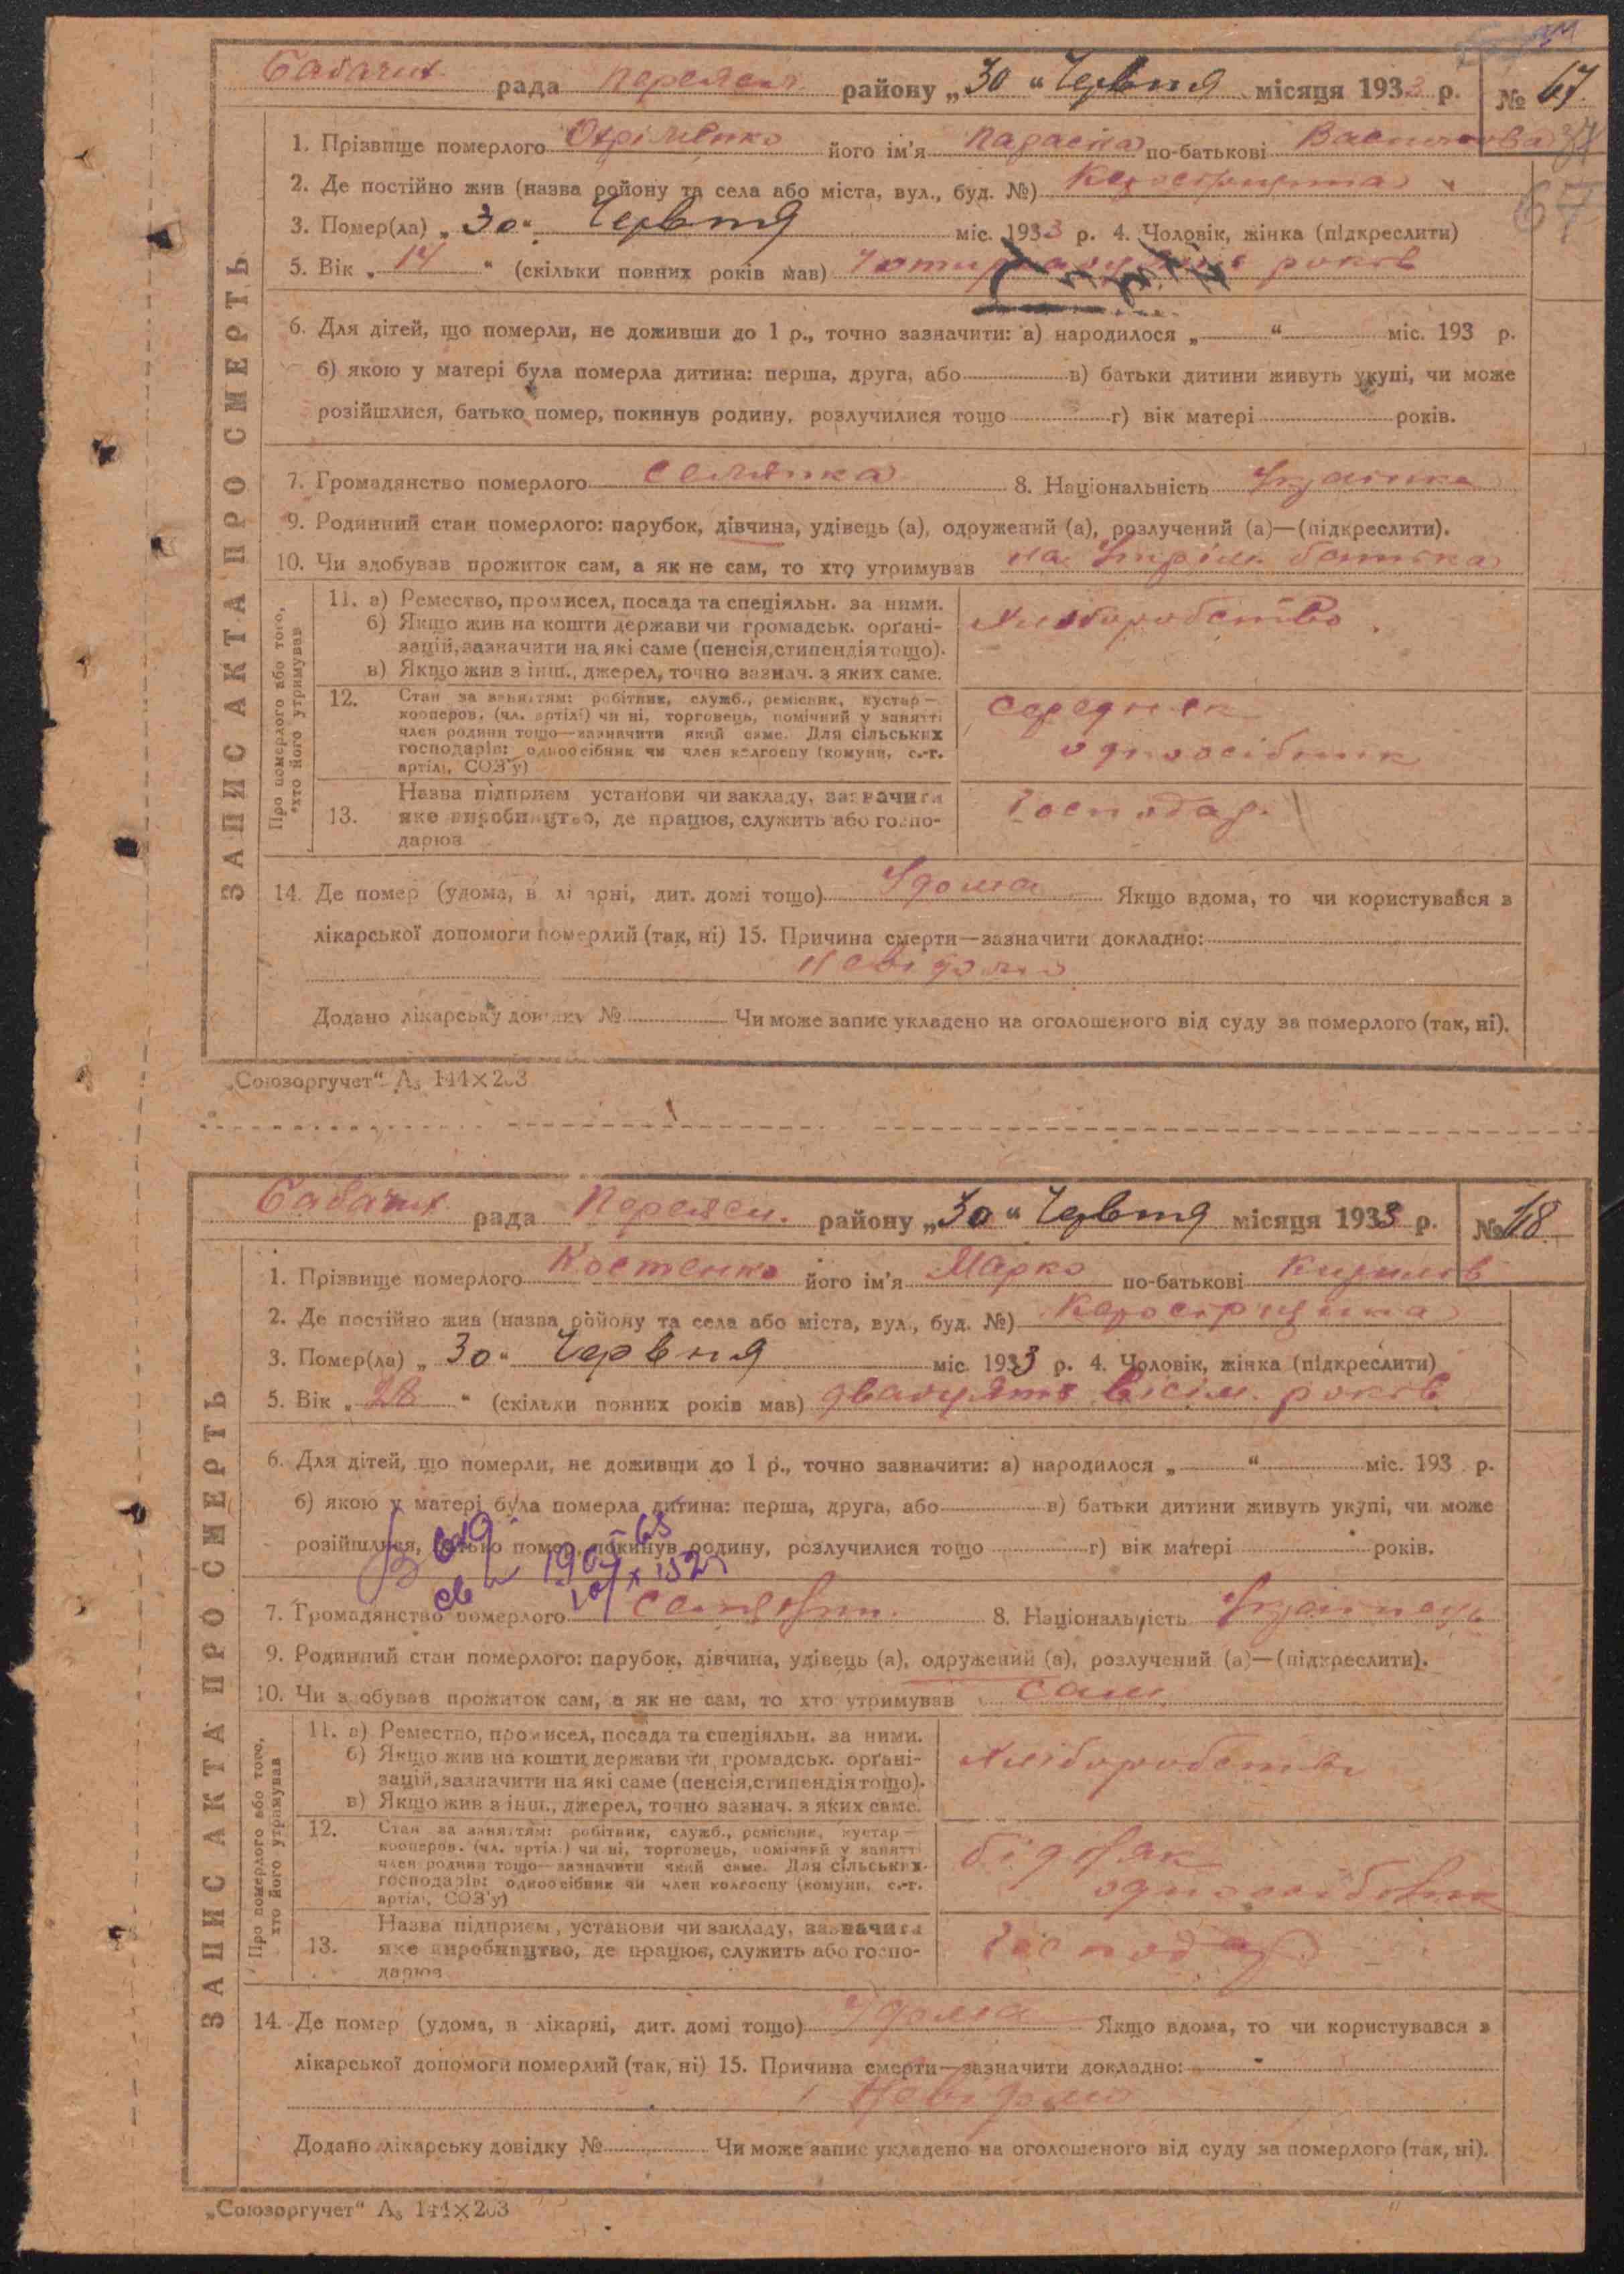 Бабачих. рада Переясл. району „30“ Червня місяця 1933 р. № 67.
67
1. Прізвище померлого його ім'я Параска по-батькові Василова
2. Де постійно жив (назва ройону та села або міста, вул., буд. №)
3. Помер(ла) „30“ Червня міс. 1933 р. 4. Чоловік, жінка (підкреслити)
5. Вік „14“ (скільки повних років мав) Чотирнадцять років
6. Для дітей, що померли, не доживши до 1 р., точно зазначити: а) народилося „ “ міс. 193 р.
б) якою у матері була померла дитина: перша, друга, або в) батьки дитини живуть укупі, чи може
розійшлися, батько помер, покинув родину, розлучилися тощо г) вік матері років.
7. Громадянство померлого Селянка 8. Національність Українка
9. Родинний стан померлого: парубок, дівчина, удівець (а), одружений (а), розлучений (а)—(підкреслити).
10. Чи здобував прожиток сам, а як не сам, то хто утримував на Утрім. батька
Про померлого або того, хто його утримував
11. а) Ремество, промисел, посада та спеціяльн. за ними.
б) Якщо жив на кошти держави чи громадськ. органі-
зацій, зазначити на які саме (пенсія, стипендія тощо).
в) Якщо жив з інш., джерел, точно зазнач. з яких саме.
Хліборобство.
12. Стан за заняттям: робітник, служб., ремісник, кустар—
кооперов. (чл. артілі) чи ні, торговець, помічний у занятті
член родини тощо—зазначити який саме. Для сільських
господарів: одноосібник чи член колгоспу (комуни, с.-г.
артілі, СОЗ'у)
Середняк
одноосібник
13. Назва підприєм установи чи закладу, зазначити
яке виробництво, де працює, служить або госпо-
дарює
Господар.
14. Де помер (удома, в лікарні, дит. домі тощо) Удома Якщо вдома, то чи користувався з
лікарської допомоги померлий (так, ні) 15. Причина смерти—зазначити докладно:
Невідомо
Додано лікарську довідку № Чи може запис укладено на оголошеного від суду за померлого (так, ні).
ЗАПИС АКТА ПРО СМЕРТЬ
„Союзоргучет“ А₅ 144×203
Бабачих. рада Переясл. району „30“ Червня місяця 1933 р. № 68
1. Прізвище померлого Костенко його ім'я Марко по-батькові Кирилов
2. Де постійно жив (назва ройону та села або міста, вул., буд. №)
3. Помер(ла) „30“ Червня міс. 1933 р. 4. Чоловік, жінка (підкреслити)
5. Вік „28“ (скільки повних років мав) двадцять вісім років
6. Для дітей, що померли, не доживши до 1 р., точно зазначити: а) народилося „ “ міс. 193 р.
б) якою у матері була померла дитина: перша, друга, або в) батьки дитини живуть укупі, чи може
розійшлися, батько помер, покинув родину, розлучилися тощо г) вік матері років.
7. Громадянство померлого Селянин. 8. Національність Українець
9. Родинний стан померлого: парубок, дівчина, удівець (а), одружений (а), розлучений (а)—(підкреслити).
10. Чи здобував прожиток сам, а як не сам, то хто утримував сам
Про померлого або того, хто його утримував
11. а) Ремество, промисел, посада та спеціяльн. за ними.
б) Якщо жив на кошти держави чи громадськ. органі-
зацій, зазначити на які саме (пенсія, стипендія тощо).
в) Якщо жив з інш., джерел, точно зазнач. з яких саме.
Хліборобство
12. Стан за заняттям: робітник, служб., ремісник, кустар—
кооперов. (чл. артілі) чи ні, торговець, помічний у занятті
член родини тощо—зазначити який саме. Для сільських
господарів: одноосібник чи член колгоспу (комуни, с.-г.
артілі, СОЗ'у)
бідняк
одноосібник
13. Назва підприєм, установи чи закладу, зазначити
яке виробництво, де працює, служить або госпо-
дарює
Господар
14. Де помер (удома, в лікарні, дит. домі тощо) Удома Якщо вдома, то чи користувався з
лікарської допомоги померлий (так, ні) 15. Причина смерти—зазначити докладно:
Невідомо
Додано лікарську довідку № Чи може запис укладено на оголошеного від суду за померлого (так, ні).
ЗАПИС АКТА ПРО СМЕРТЬ
„Союзоргучет“ А₅ 144×203